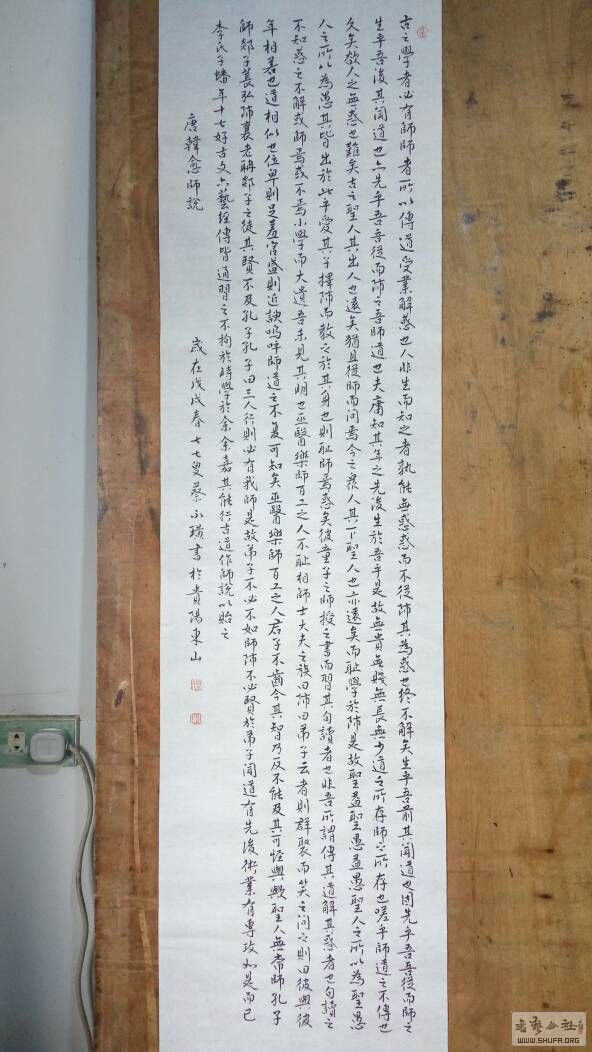 古之學者必有師師者所以傳道受業解惑也人非生而知之者孰能無惑惑而不從師其為惑也終不解矣生乎吾前其聞道也固先乎吾吾從而師之
生乎吾後其聞道也亦先乎吾吾從而師之吾師道也夫庸知其年之先後生於吾乎是故無貴無賤無長無少道之所存師之所存也嗟乎師道之不傳也
久矣欲人之無惑也難矣古之聖人其出人也遠矣猶且從師而問焉今之眾人其下聖人也亦遠矣而恥學於師是故聖益聖愚益愚聖人之所以為聖愚
人之所以為愚其皆出於此乎愛其子擇師而教之於其身也則恥師焉惑矣彼童子之師授之書而習其句讀者也非吾所謂傳其道解其惑者也句讀之
不知惑之不解或師焉或不焉小學而大遺吾未見其明也巫醫樂師百工之人不恥相師士大夫之族曰師曰弟子云者則群聚而笑之問之則曰彼與彼
年相若也道相似也位卑則足羞官盛則近諛嗚呼師道之不復可知矣巫醫樂師百工之人君子不齒今其智乃反不能及其可怪與歟聖人無常師孔子
師郯子萇弘師襄老聃郯子之徒其賢不及孔子孔子曰三人行則必有我師是故弟子不必不如師師不必賢於弟子聞道有先後術業有專攻如是而已
李氏子蟠年十七好古文六藝經傳皆通習之不拘於時學於余余嘉其能行古道作師說以貽之
唐韓愈師說
歲在戊戌春七七叟蔡永璜書於貴陽東山
書藝公社
WWW.SHUFA.ORG